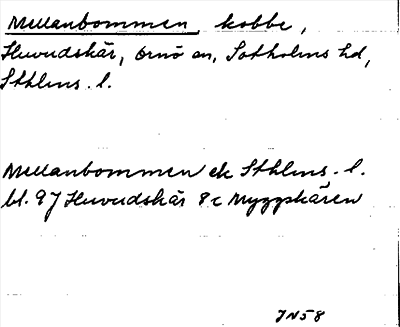 Mellanbommen, kobbe,
Huvudskär, Ornö sn, Sotholms hd,
Sthlms. l.
Mellanbommen ek Sthlms. l.
bl. 97 Huvudskär 8 c Myggskären
JN58